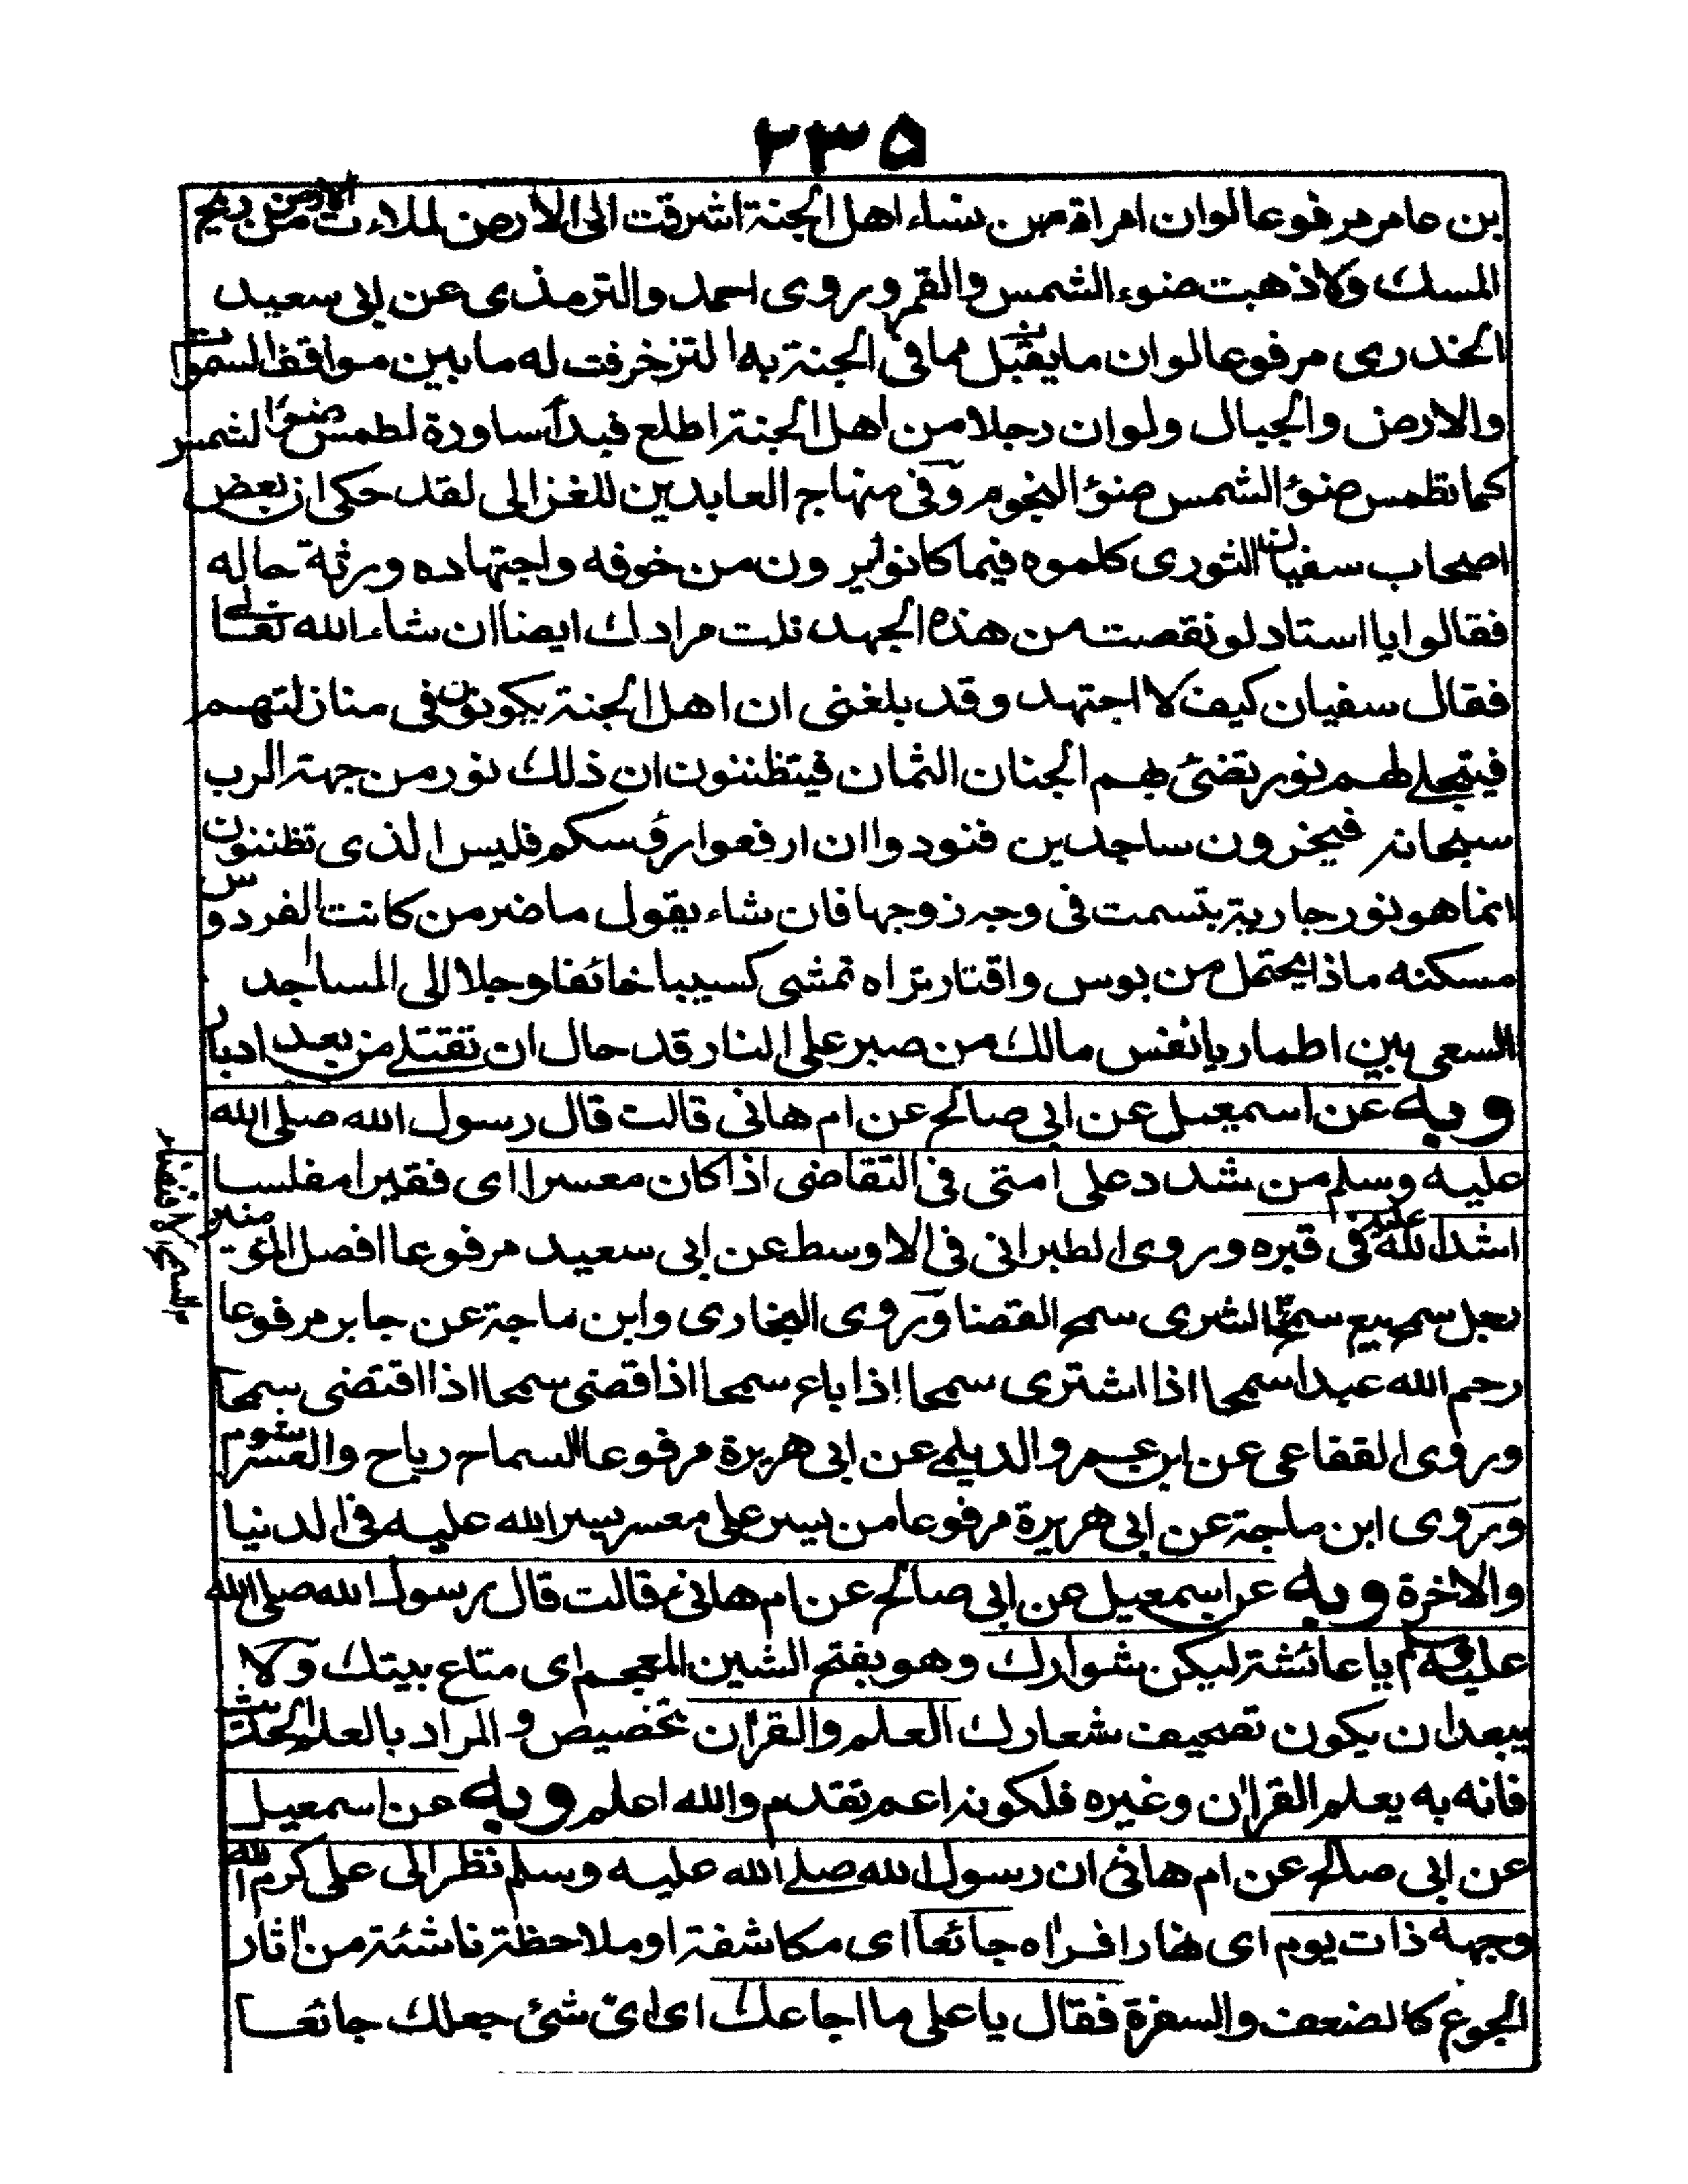 ٢٣٥
بن عامر مرفوعا لو ان امراة من نساء اهل الجنة اشرقت الى الارض لملاءت الارض من ريح
المسك ولاذهبت ضوء الشمس والقمر وروى احمد والترمذى عن ابى سعيد
الخدرى مرفوعا لو ان ما يقبل مما فى الجنة به ا لتزخرفت له ما بين مواقف السموات
والارض والجبال ولو ان رجلا من اهل الجنة اطلع فبدأ ساورة لطمس ضوء الشمس
كما تطمس ضوء الشمس ضوء النجوم وفى منهاج العابدين للغزالى لقد حكى ان بعض
اصحاب سفيان الثورى كلموه فيما كانوا يرون من خوفه واجتهاده ورثة حاله
فقالوا يا استاد لو نقصت من هذه الجهد نلت مرادك ايضا ان شاء الله تعالى
فقال سفيان كيف لا اجتهد وقد بلغنى ان اهل الجنة يكونون فى منازلتهم
فيتجلے لهم نور تضئ بهم الجنان الثمان فيتظننون ان ذلك نور من جهة الرب
سبحانه فيخرون ساجدين فنودوا ان ارفعوا رؤسكم فليس الذى تظننون
انما هو نور جارية بتسمت فى وجه زوجها فان شاء يقول ما ضر من كانت الفردوس
مسكنه ماذا يحتمل من بوس واقتار تراه تمشى كسيبا خائفا وجلا الى المساجد
السعى بين اطمار يا نفس مالك من صبر على النار قد حال ان تقتلے من بعد ادبار
وبه عن اسمعيل عن ابى صالح عن ام هانى قالت قال رسول الله صلى الله
عليه وسلم من شدد على امتى فى التقاضى اذا كان معسرا اى فقيرا مفلسا
اشد الله عليه فى قبره وروى الطبرانى فى الاوسط عن ابى سعيد مرفوعا افضل المؤمنين
رجل سمح بيع سمح الشرى سمح القضا وروى البخارى وابن ماجة عن جابر مرفوعا
سمح الاقتضاء
رحم الله عبدا سمحا اذا اشترى سمحا اذا باع سمحا اذا قضى سمحا اذا اقتضى سمحا
وروى القفاعى عن ابن عمر والديلمے عن ابى هريرة مرفوعا السماح رباح والعسر شوم
وروى ابن ماجة عن ابى هريرة مرفوعا من يسر على معسر يسر الله عليه فى الدنيا
والاخرة وبه عن اسمعيل عن ابى صالح عن ام هانئ قالت قال رسول الله صلى الله
عليه وسلم يا عائشة ليكن شوارك وهو بفتح الشين المعجم اى متاع بيتك ولا
يبعد ان يكون تصحيف شعارك العلم والقرآن تخصيص والمراد بالعلم الحديث
فانه به يعلم القرآن وغيره فلكونه اعم تقدم والله اعلم وبه عن اسمعيل
عن ابى صالح عن ام هانئ ان رسول الله صلے الله عليه وسلم نظر الى على كرم الله
وجهه ذات يوم اى نهارا فراه جائعا اى مكاشفة او ملاحظة ناشئة من اثار
الجوع كالضعف والسفرة فقال يا على ما اجاعك اى اىّ شئ جعلك جائعا